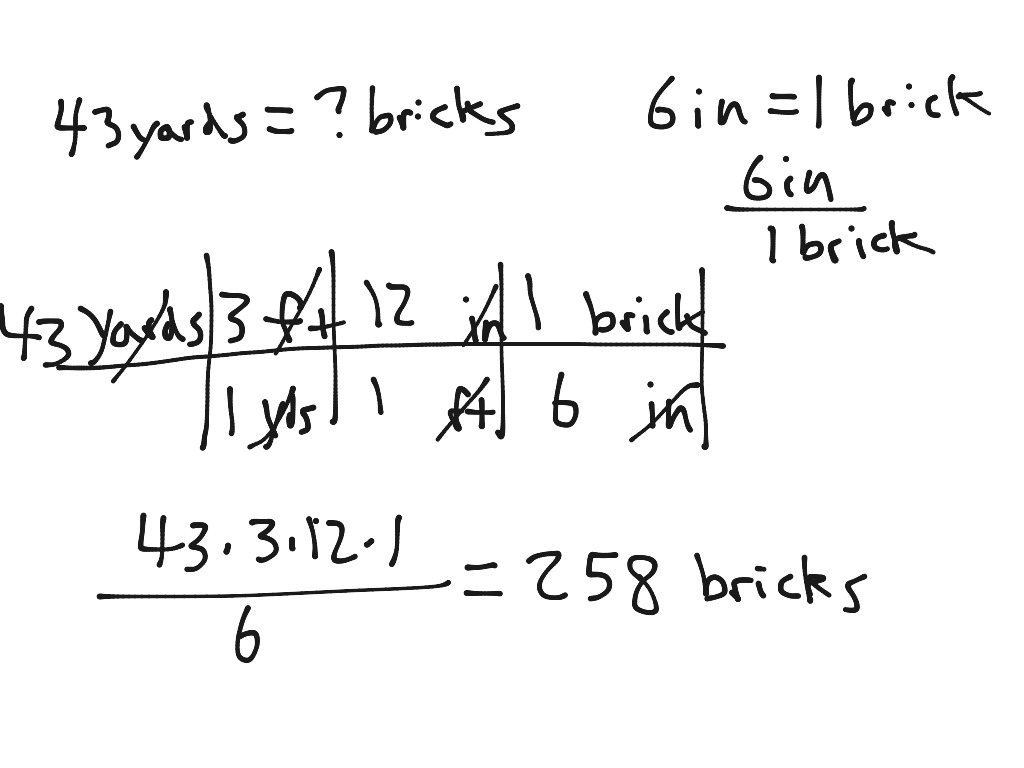 43 yards = ? bricks
6 in = 1 brick
6 in
1 brick
43 yards 3 ft 12 in 1 brick
1 yds 1 ft 6 in
43 · 3 · 12 · 1
6
= 258 bricks